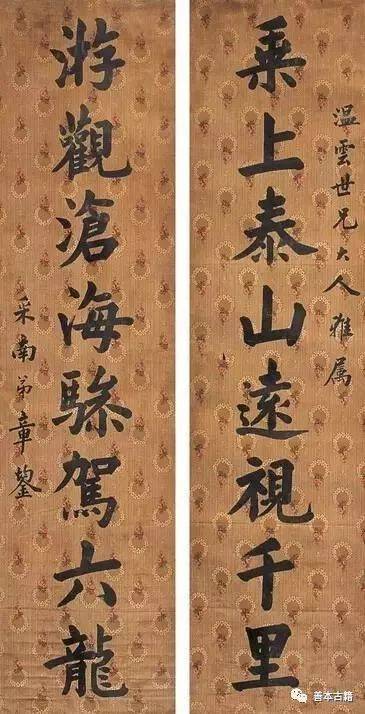 温雲世兄大人雅属
乘上泰山遠視千里
游觀滄海驂駕六龍
采南弟章鋆
善本古籍